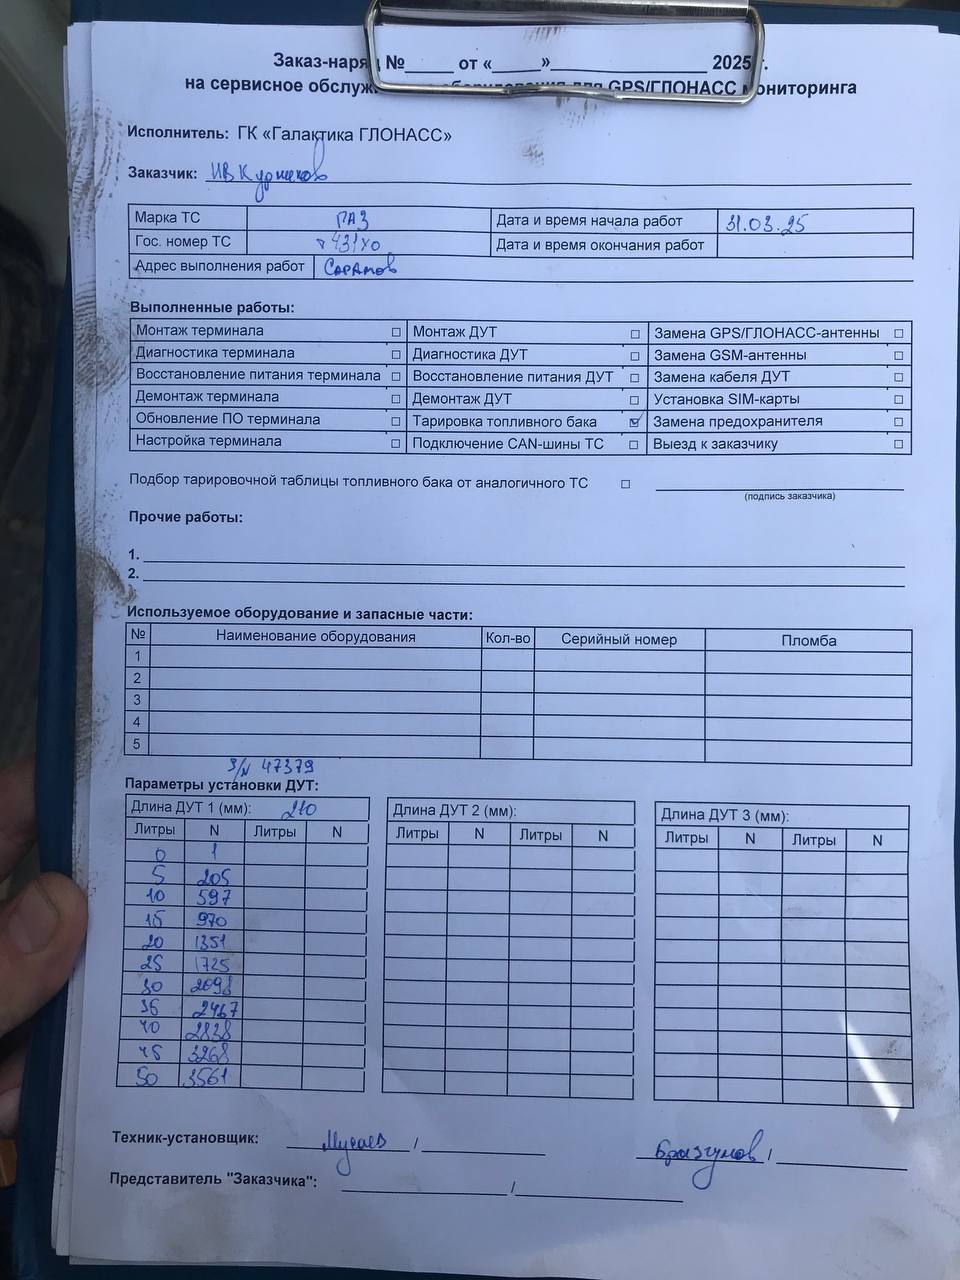 Заказ-наряд №_____ от «_____»________________ 2025 г.
на сервисное обслуж оборудования для GPS/ГЛОНАСС мониторинга
Исполнитель: ГК «Галактика ГЛОНАСС»
Заказчик:
Марка ТС ПАЗ Дата и время начала работ 31.03.25
Гос. номер ТС 431ХО Дата и время окончания работ
Адрес выполнения работ Саратов
Выполненные работы:
Монтаж терминала ☐ Монтаж ДУТ ☐ Замена GPS/ГЛОНАСС-антенны ☐
Диагностика терминала ☐ Диагностика ДУТ ☐ Замена GSM-антенны ☐
Восстановление питания терминала ☐ Восстановление питания ДУТ ☐ Замена кабеля ДУТ ☐
Демонтаж терминала ☐ Демонтаж ДУТ ☐ Установка SIM-карты ☐
Обновление ПО терминала ☐ Тарировка топливного бака ☑ Замена предохранителя ☐
Настройка терминала ☐ Подключение CAN-шины ТС ☐ Выезд к заказчику ☐
Подбор тарировочной таблицы топливного бака от аналогичного ТС ☐
(подпись заказчика)
Прочие работы:
1.
2.
Используемое оборудование и запасные части:
№ Наименование оборудования Кол-во Серийный номер Пломба
1
2
3
4
5
S/N 47379
Параметры установки ДУТ:
Длина ДУТ 1 (мм): 210 Длина ДУТ 2 (мм): Длина ДУТ 3 (мм):
Литры N Литры N Литры N Литры N Литры N Литры N
0 1
5 205
10 597
15 970
20 1351
25 1725
30 2098
35 2467
40 2838
45 3268
50 3561
Техник-установщик: Мусаев / Бразгунов /
Представитель "Заказчика": /